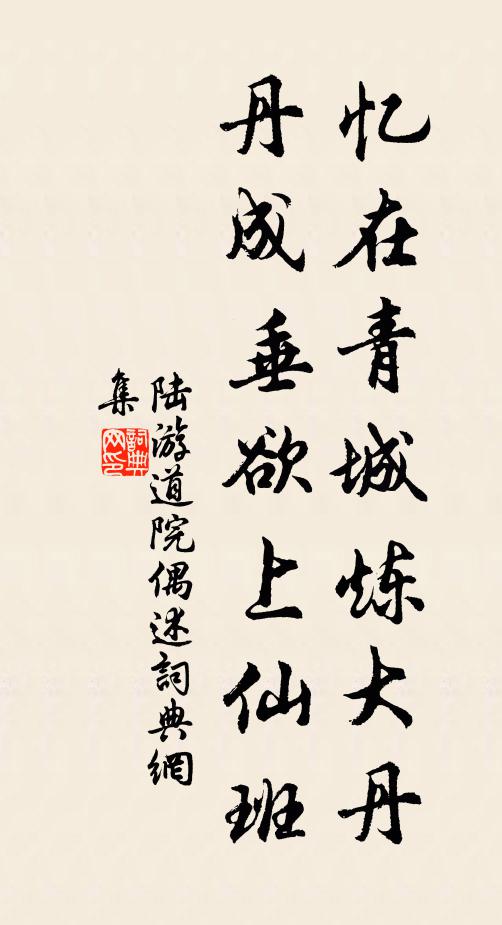 忆在青城炼大丹
丹成垂欲上仙班
陆游道院偶述詞典網
集
詞典
网印